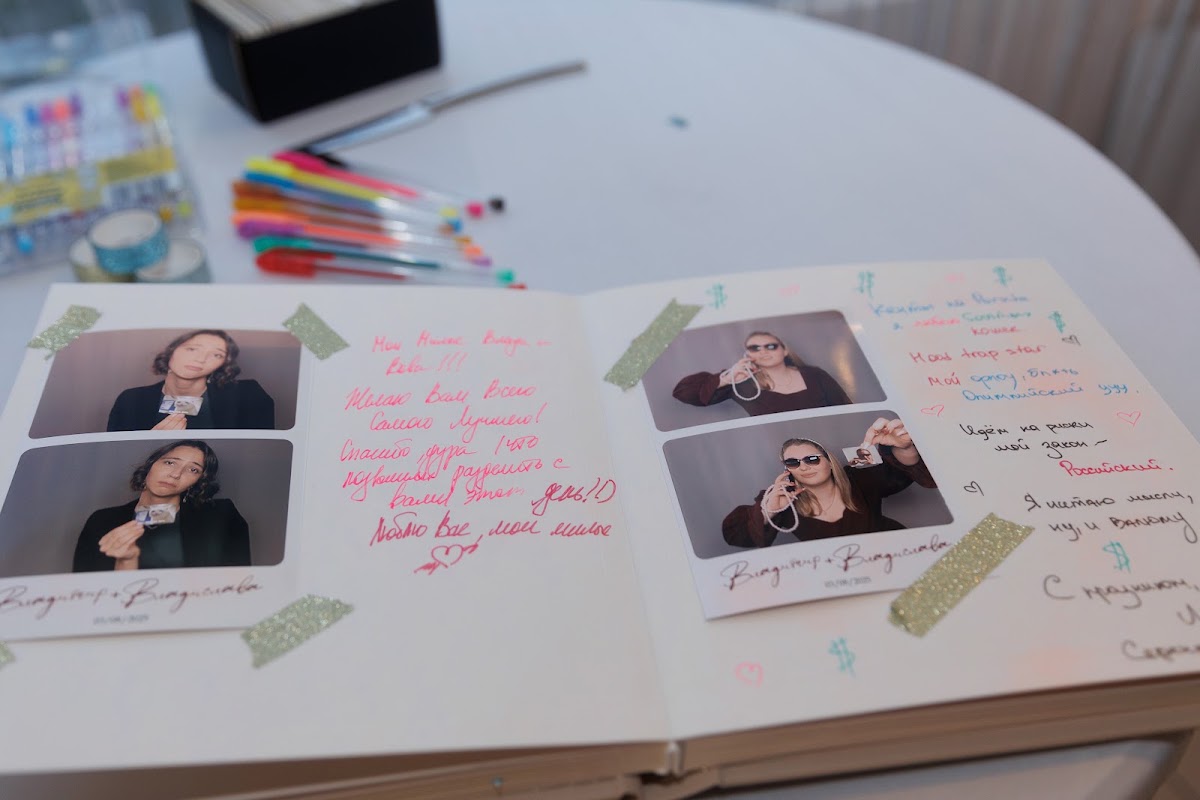 Мои Милые Влада и
Вова!!!
Желаю Вам Всего
Самого Лучшего!
Спасибо, дура! что
позволили разделить с
Вами этот день!!)
Люблю Вас, мои милые
Владимир + Владислава
03/08/2025
на
я люблю
кошек
Мой trap star
Мой опять
Олимпийский уууу.
Идём на риски
мой закон –
Российский.
Я читаю мысли,
ну, и
С праздником,
Владимир + Владислава
03/08/2025